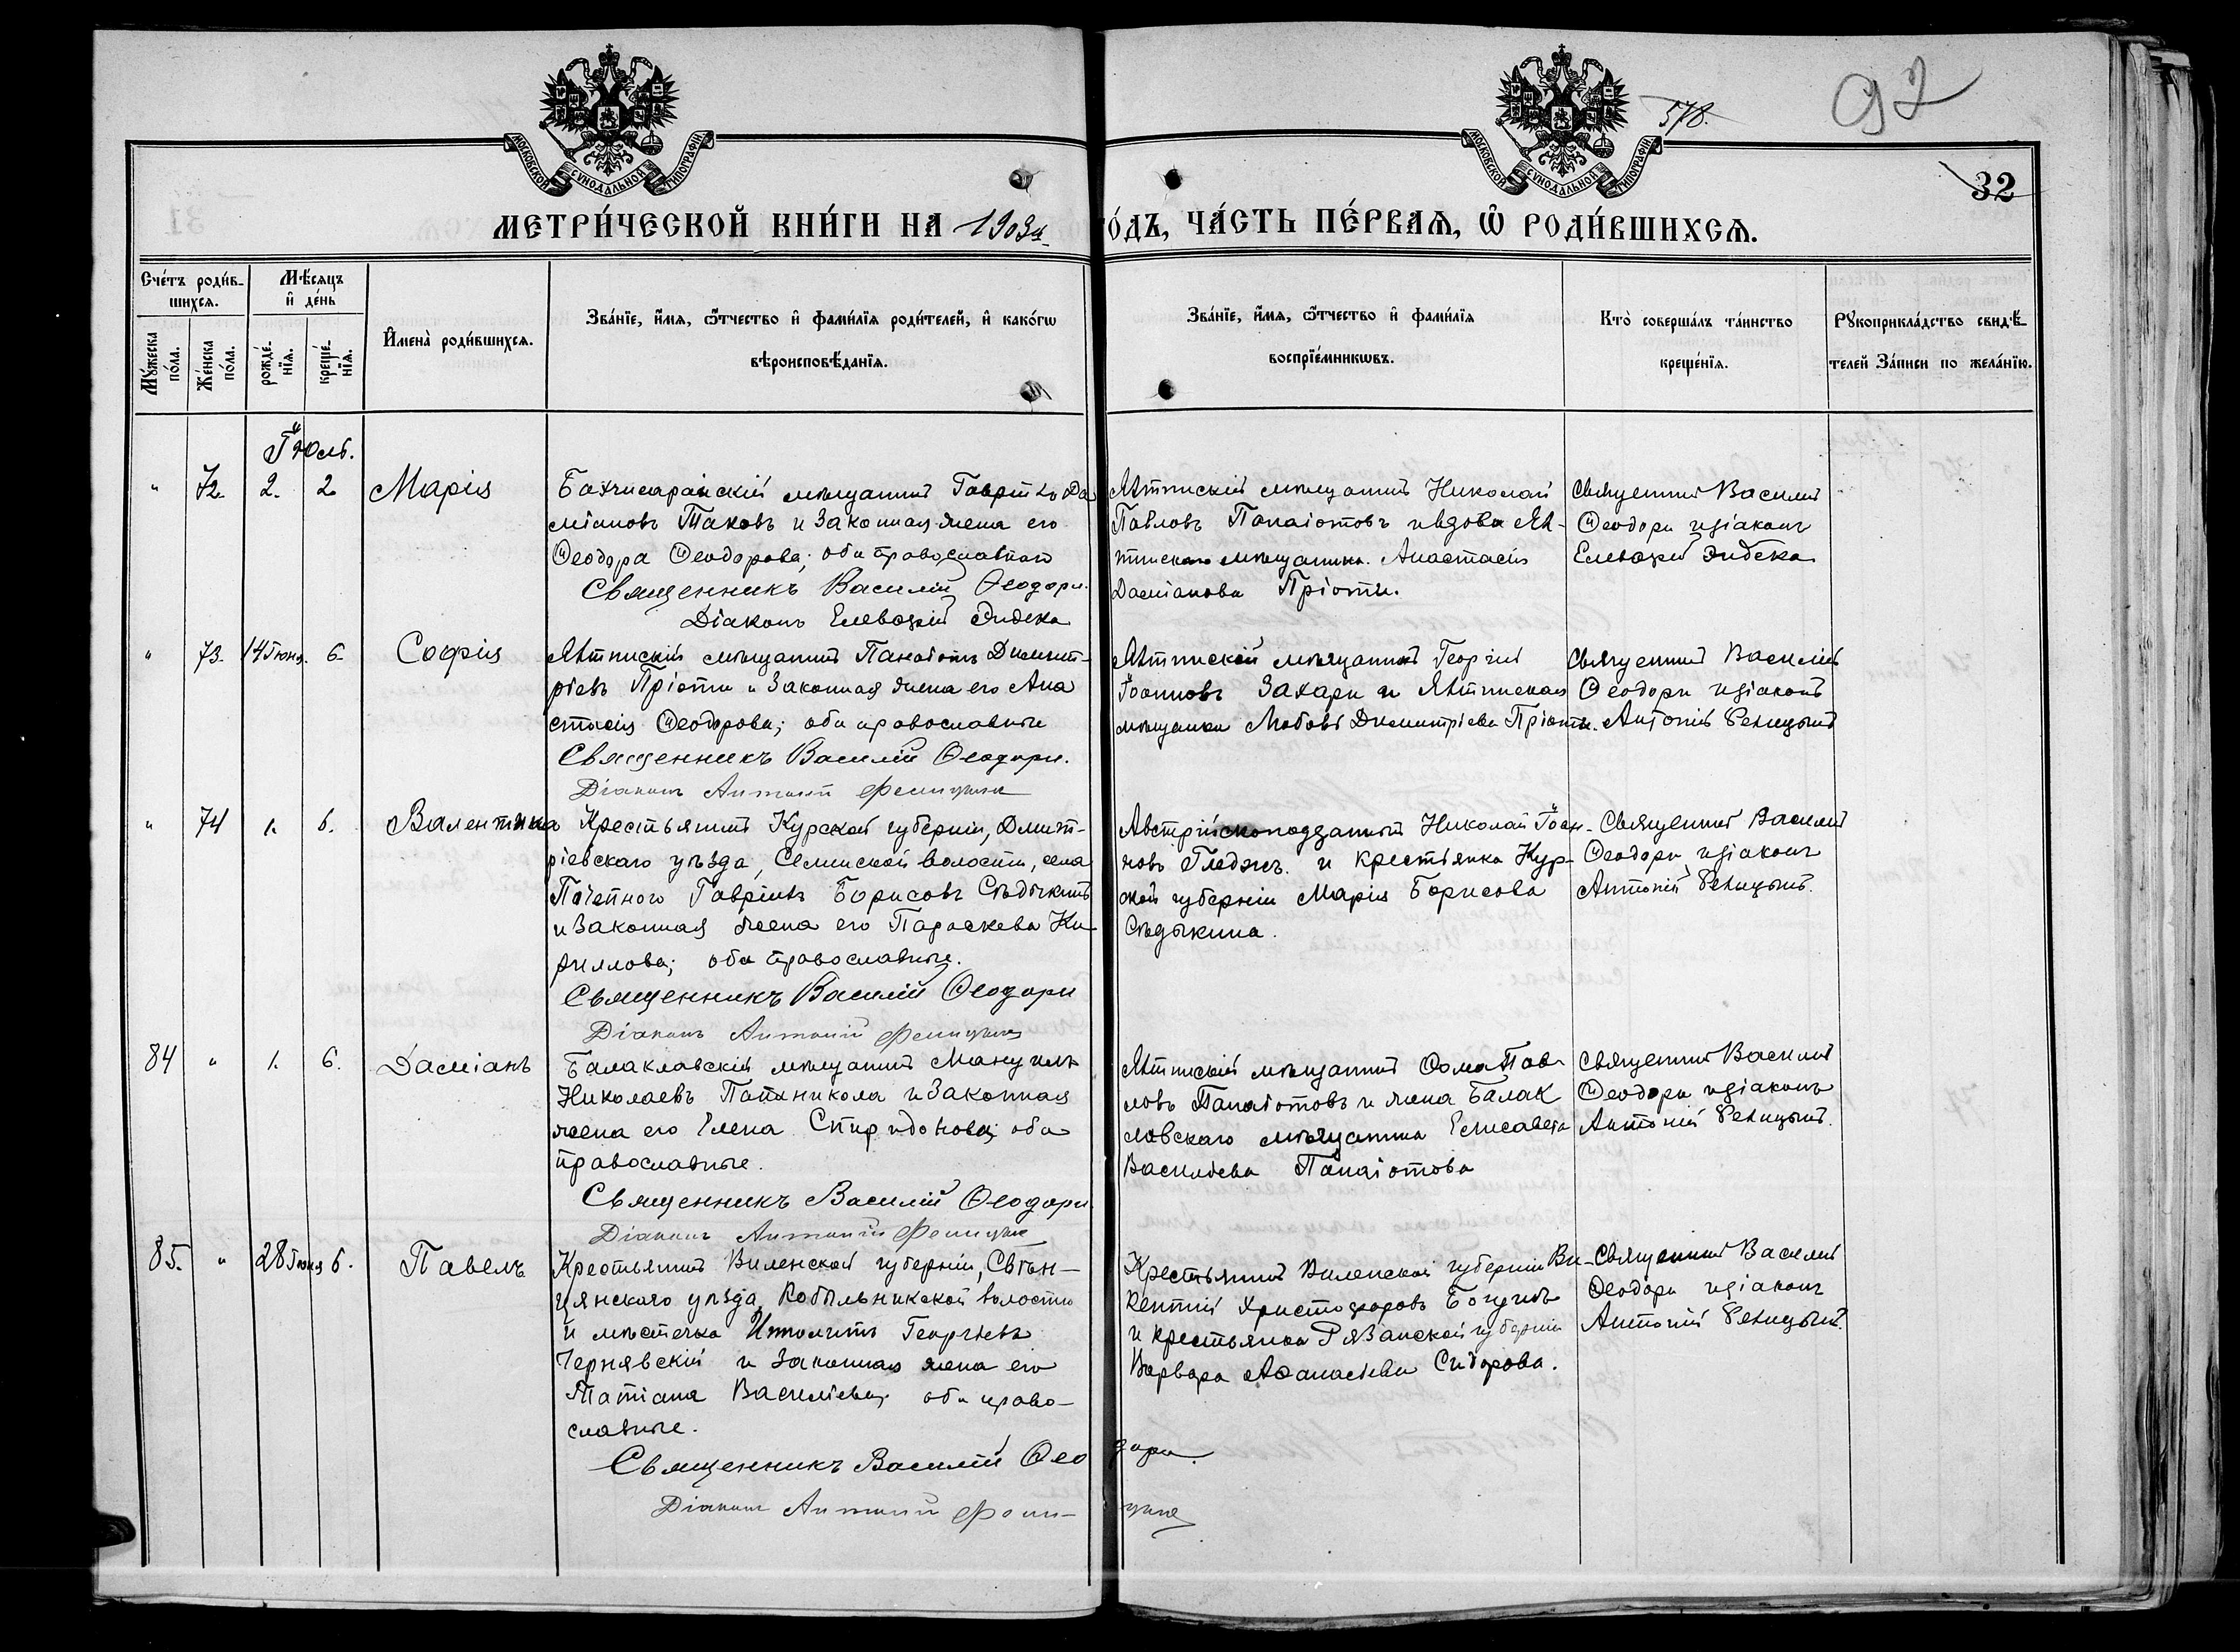 92
578.
МОСКОВСКОЙ СУНОДАЛЬНОЙ ТИПОГРАФІИ
МОСКОВСКОЙ СУНОДАЛЬНОЙ ТИПОГРАФІИ
32
МЕТРИ́ЧЕСКОЙ КНИ́ГИ НА 1903й
ГО́ДЪ, ЧА́СТЬ ПЕ́РВАѦ, Ѡ҆ РОДИ́ВШИХСѦ.
Сче́тъ роди́в-
шихсѧ.
Мѣ́сѧцъ
и҆ де́нь
Мꙋ́жеска
по́ла.
Же́нска
по́ла.
рожде́-
нїѧ.
креще́-
нїѧ.
И҆мена̀ роди́вшихсѧ.
Зва́нїе, и҆́мѧ, ѻ҆́тчество и҆ фами́лїѧ роди́телей, и҆ како́гѡ
вѣроисповѣ́данїѧ.
Зва́нїе, и҆́мѧ, ѻ҆́тчество и҆ фами́лїѧ
воспрїе́мникѡвъ.
Кто̀ соверша́лъ та́инство
креще́нїѧ.
Рꙋкоприкла́дство свидѣ́-
телей За́писи по жела́нїю.
Іюль.
" 72. 2. 2 Марія
Бахчисарайскій мѣщанинъ Гавріилъ Да
міановъ Таковъ и законная жена его
Ѳеодора Ѳеодорова; оба православные
Священникъ Василій Ѳеодори.
Діаконъ Елевѳерій Эндека
Ялтинскій мѣщанинъ Николай
Павловъ Панаіотовъ и вдова Ял-
тинскаго мѣщанина Анастасія
Даміанова Пріоти.
Священникъ Василій
Ѳеодори и діаконъ
Елевѳерій Эндека
" 73. 14 Іюня. 6. Софія
Ялтинскій мѣщанинъ Панаіотъ Димит-
ріевъ Пріоти и законная жена его Ана
стасія Ѳеодорова; оба православные
Священникъ Василій Ѳеодори.
Діаконъ Антоній Феницынъ
Ялтинскій мѣщанинъ Георгій
Іоанновъ Захари и Ялтинская
мѣщанка Любовь Димитріева Пріоти.
Священникъ Василій
Ѳеодори и діаконъ
Антоній Феницынъ
" 74 1. 6. Валентина
Крестьянинъ Курской губерніи, Дмит-
ріевскаго уѣзда, Селинской волости, села
Почепного Гавріилъ Борисовъ Сѣдыкинъ
и законная жена его Параскева Ки-
риллова; оба православные.
Священникъ Василій Ѳеодори
Діаконъ Антоній Феницынъ
Австрійскоподданный Николай Іоан-
новъ Гледжъ и крестьянка Кур-
ской губерніи Марія Борисова
Сѣдыкина.
Священникъ Василій
Ѳеодори и діаконъ
Антоній Феницынъ.
84 " 1. 6. Даміанъ
Балаклавскій мѣщанинъ Мануилъ
Николаевъ Папаникола и законная
жена его Елена Спиридонова; оба
православные.
Священникъ Василій Ѳеодори
Діаконъ Антоній Феницынъ
Ялтинскій мѣщанинъ Ѳома Пав-
ловъ Панаіотовъ и жена Балак
лавскаго мѣщанина Елисавета
Васильева Панаіотова
Священникъ Василій
Ѳеодори и діаконъ
Антоній Феницынъ.
85. " 28 Іюня 6. Павелъ
Крестьянинъ Виленской губерніи, Свѣн-
цянскаго уѣзда, Кобыльникской волости
и мѣстечка Ипполитъ Георгіевъ
Чернявскій и законная жена его
Татіана Василіева; оба право-
славные.
Священникъ Василій Ѳеодори.
Діаконъ Антоній Феницынъ
Крестьянинъ Виленской губерніи Ви-
кентій Христофоровъ Богунъ
и крестьянка Рязанской губерніи
Варвара Аѳанасіева Сидорова.
Священникъ Василій
Ѳеодори и діаконъ
Антоній Феницынъ.